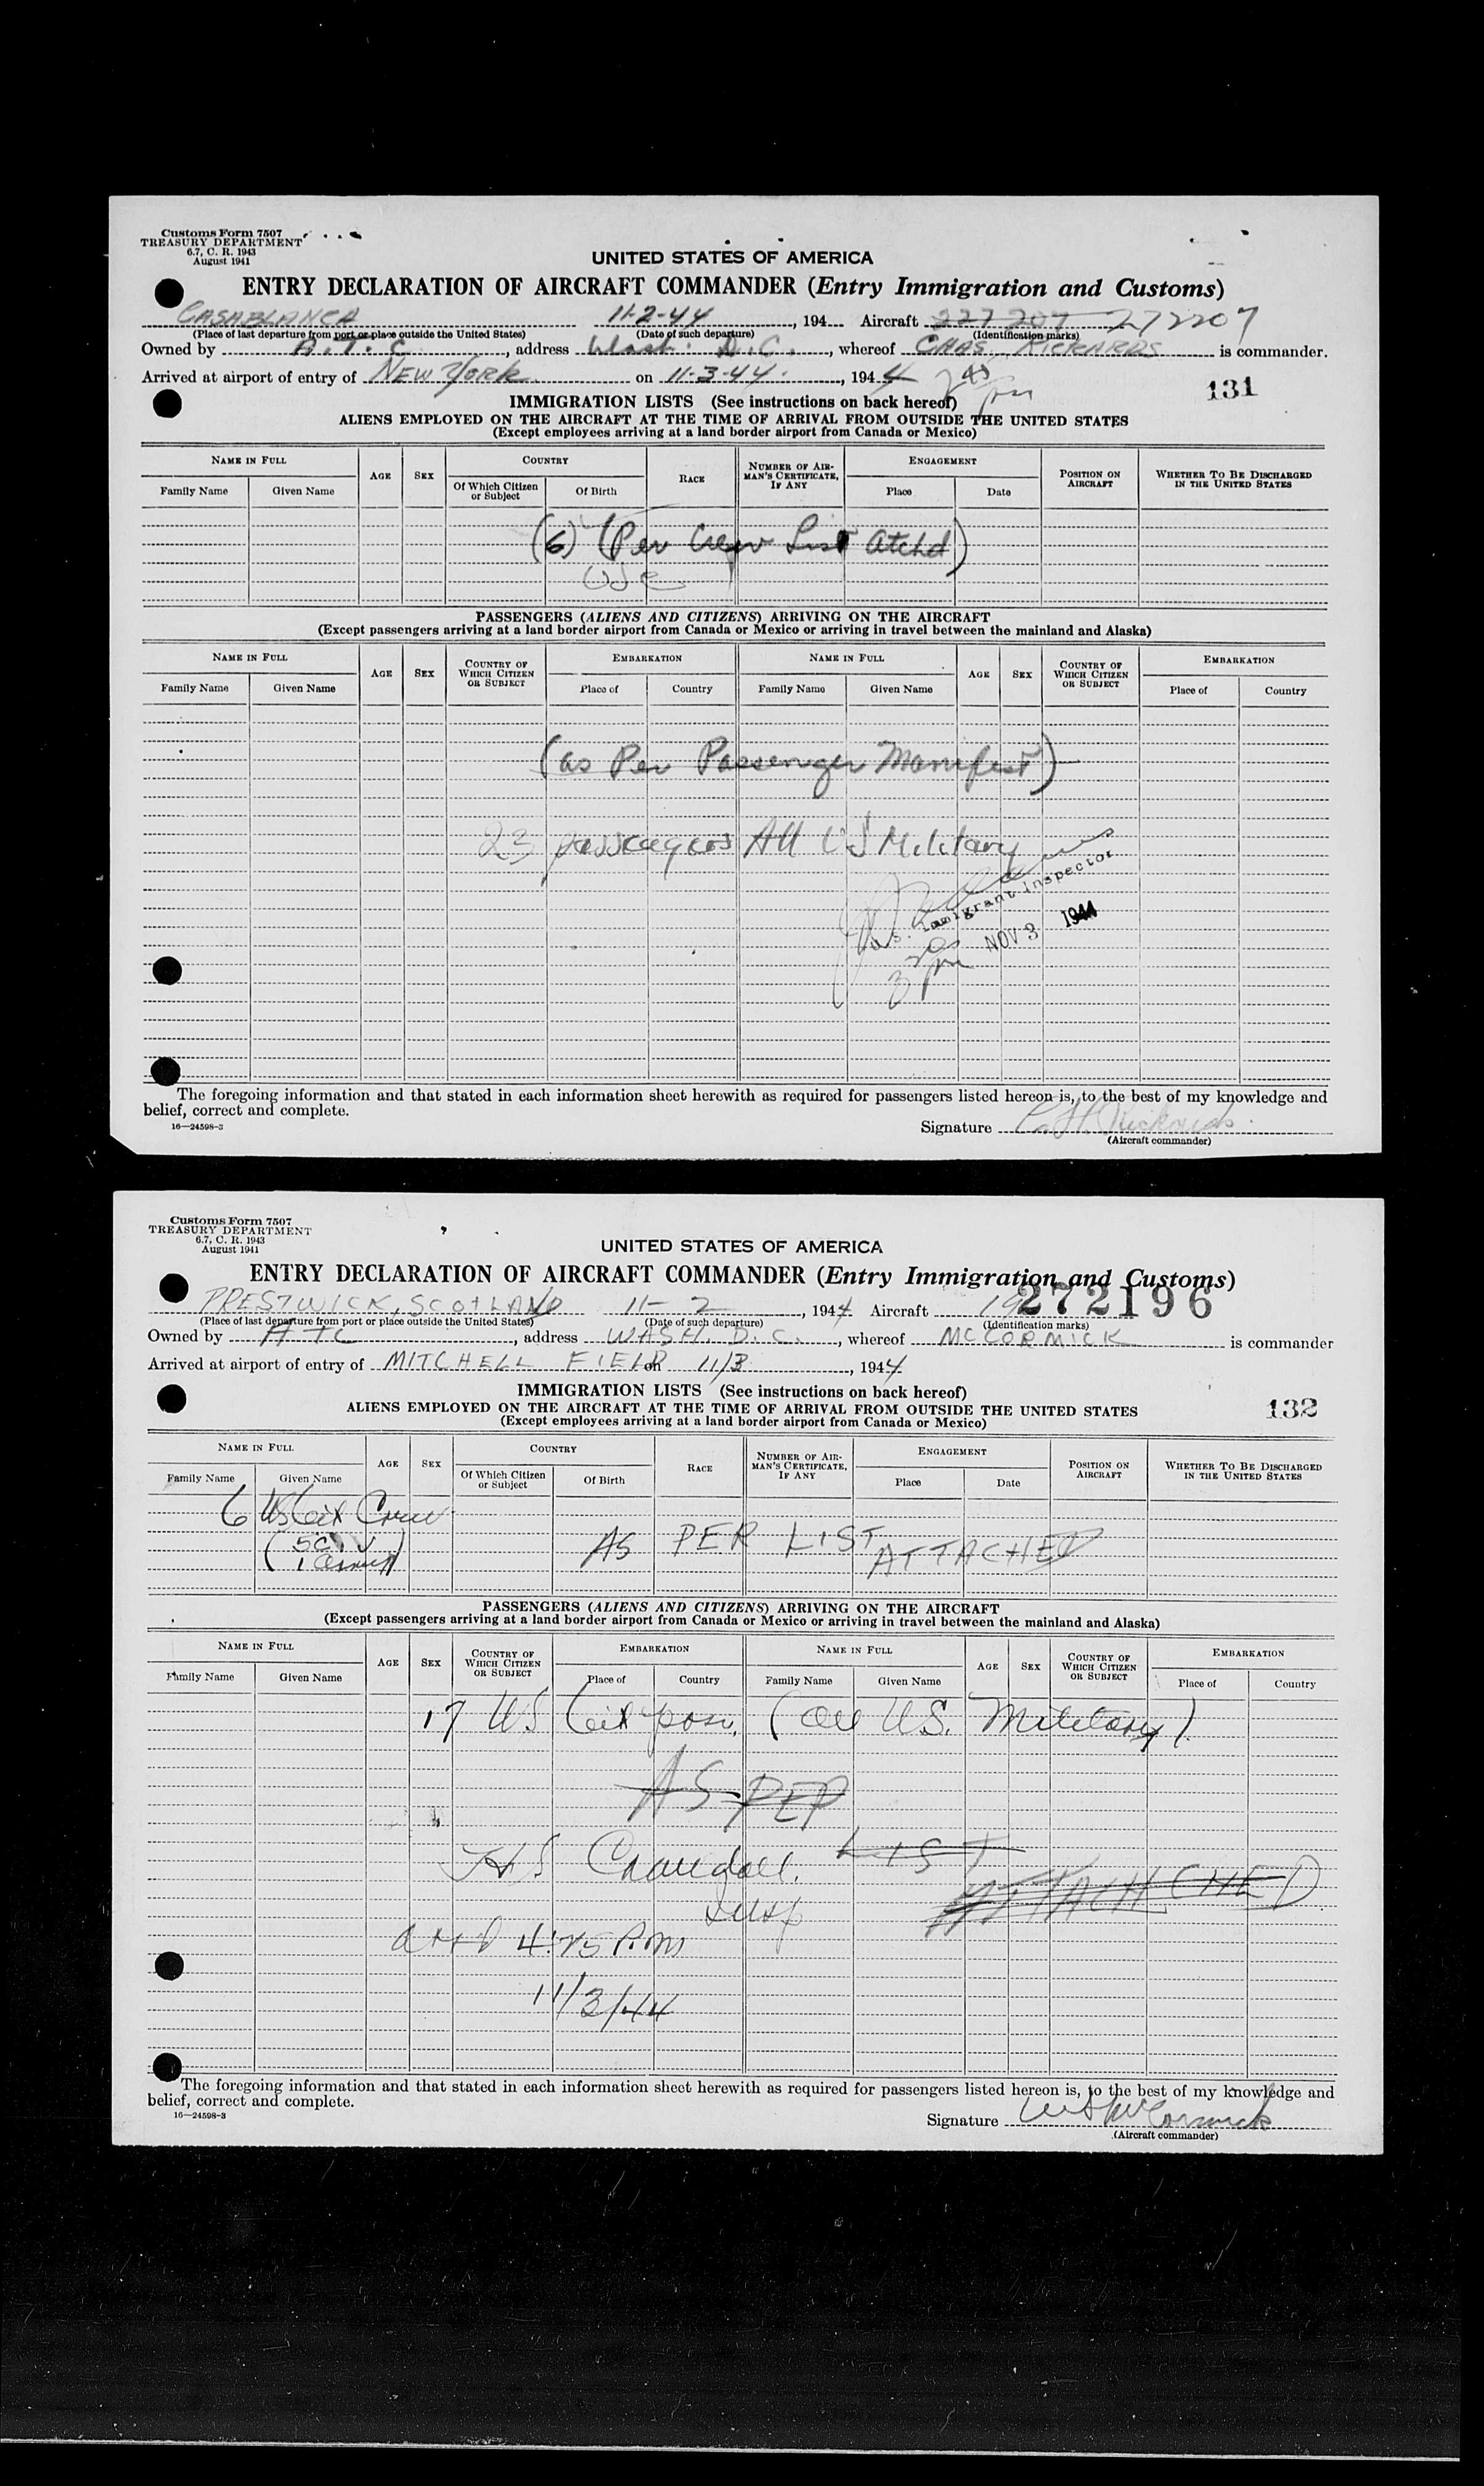 Customs Form 7507
TREASURY DEPARTMENT
6.7, C. R. 1943
August 1941
UNITED STATES OF AMERICA
ENTRY DECLARATION OF AIRCRAFT COMMANDER (Entry Immigration and Customs)
CASABLANCA 11-2-44, 194 Aircraft 227 207 272207
(Place of last departure from port or place outside the United States) (Date of such departure) (Identification marks)
Owned by A.T.C., address Wash. D.C., whereof CHAS. RICKARDS is commander.
Arrived at airport of entry of NEW YORK on 11-3-44, 1944 2 45 pm
131
IMMIGRATION LISTS (See instructions on back hereof)
ALIENS EMPLOYED ON THE AIRCRAFT AT THE TIME OF ARRIVAL FROM OUTSIDE THE UNITED STATES
(Except employees arriving at a land border airport from Canada or Mexico)
NAME IN FULL AGE SEX COUNTRY RACE NUMBER OF AIRMAN'S CERTIFICATE, IF ANY ENGAGEMENT POSITION ON AIRCRAFT WHETHER TO BE DISCHARGED IN THE UNITED STATES
Family Name Given Name Of Which Citizen or Subject Of Birth Place Date
(6) (Per Crew List Atchd)
USC
PASSENGERS (ALIENS AND CITIZENS) ARRIVING ON THE AIRCRAFT
(Except passengers arriving at a land border airport from Canada or Mexico or arriving in travel between the mainland and Alaska)
NAME IN FULL AGE SEX COUNTRY OF WHICH CITIZEN OR SUBJECT EMBARKATION NAME IN FULL AGE SEX COUNTRY OF WHICH CITIZEN OR SUBJECT EMBARKATION
Family Name Given Name Place of Country Family Name Given Name Place of Country
(as Per Passenger Manifest)
23 passengers All US Military
U.S. Immigrant Inspector
NOV 3 1944
3 pm
The foregoing information and that stated in each information sheet herewith as required for passengers listed hereon is, to the best of my knowledge and
belief, correct and complete.
16—24598-3
Signature C.H. Rickards
(Aircraft commander)
Customs Form 7507
TREASURY DEPARTMENT
6.7, C. R. 1943
August 1941
UNITED STATES OF AMERICA
ENTRY DECLARATION OF AIRCRAFT COMMANDER (Entry Immigration and Customs)
PRESTWICK, SCOTLAND 11-2, 1944 Aircraft 19 272196
(Place of last departure from port or place outside the United States) (Date of such departure) (Identification marks)
Owned by ATC, address WASH. D.C., whereof MCCORMICK is commander
Arrived at airport of entry of MITCHELL FIELD on 11/3, 1944
132
IMMIGRATION LISTS (See instructions on back hereof)
ALIENS EMPLOYED ON THE AIRCRAFT AT THE TIME OF ARRIVAL FROM OUTSIDE THE UNITED STATES
(Except employees arriving at a land border airport from Canada or Mexico)
NAME IN FULL AGE SEX COUNTRY RACE NUMBER OF AIRMAN'S CERTIFICATE, IF ANY ENGAGEMENT POSITION ON AIRCRAFT WHETHER TO BE DISCHARGED IN THE UNITED STATES
Family Name Given Name Of Which Citizen or Subject Of Birth Place Date
6 US Cit Crew
(5 CIV
1 Army)
AS PER LIST ATTACHED
PASSENGERS (ALIENS AND CITIZENS) ARRIVING ON THE AIRCRAFT
(Except passengers arriving at a land border airport from Canada or Mexico or arriving in travel between the mainland and Alaska)
NAME IN FULL AGE SEX COUNTRY OF WHICH CITIZEN OR SUBJECT EMBARKATION NAME IN FULL AGE SEX COUNTRY OF WHICH CITIZEN OR SUBJECT EMBARKATION
Family Name Given Name Place of Country Family Name Given Name Place of Country
17 US Cit pass. (All U.S. Military)
AS PER
LIST
ATTACHED
HS Crandall.
Insp
arrd 4:25 P.M
11/3/44
The foregoing information and that stated in each information sheet herewith as required for passengers listed hereon is, to the best of my knowledge and
belief, correct and complete.
16—24598-3
Signature McCormick
(Aircraft commander)